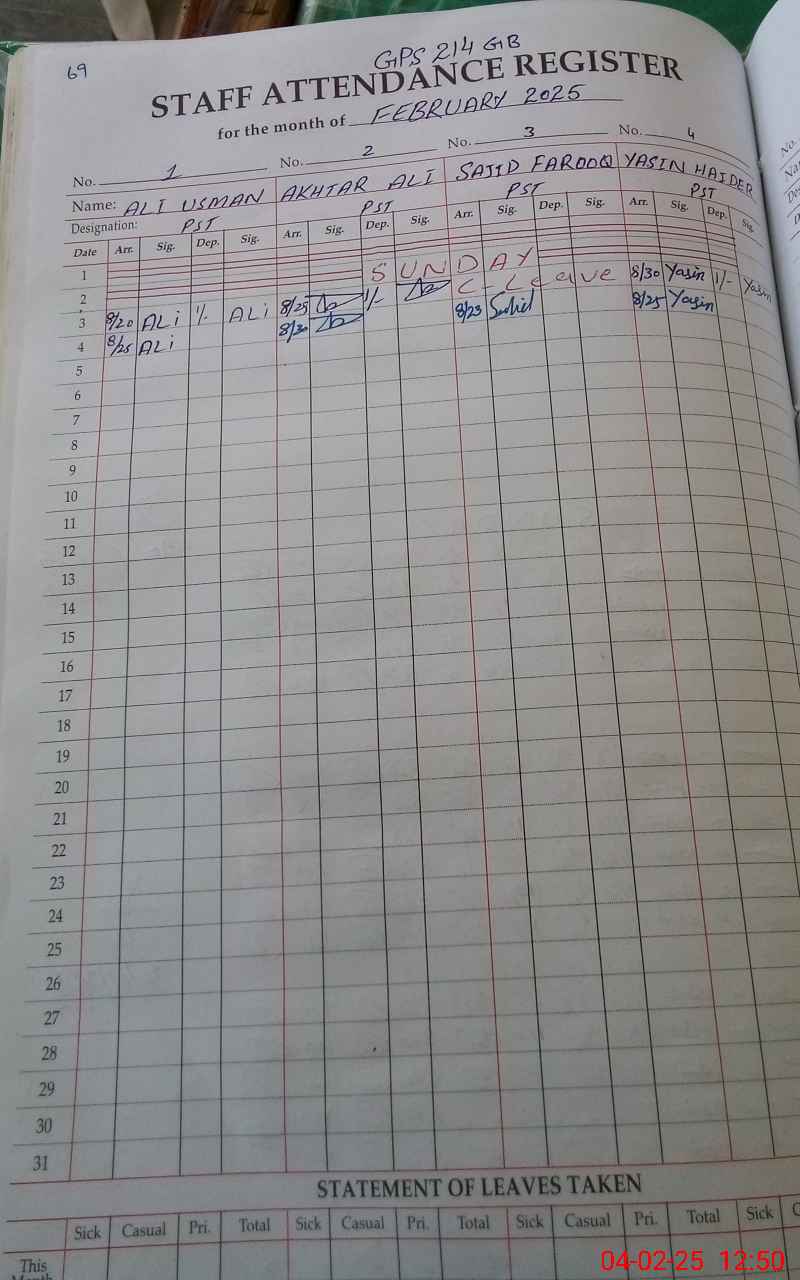 69
GPS 214 GB
STAFF ATTENDANCE REGISTER
for the month of FEBRUARY 2025
No. 1 No. 2 No. 3 No. 4
Name: ALI USMAN AKHTAR ALI SAJID FAROOQ YASIN HAIDER
Designation: PST PST PST PST
Date Arr. Sig. Dep. Sig. Arr. Sig. Dep. Sig. Arr. Sig. Dep. Sig. Arr. Sig. Dep. Sig.
1
2 SUNDAY
3 8/20 ALi 1/- ALi 8/25 1/- C-Leave 8/30 Yasin 1/- Yasin
4 8/25 ALi 8/30 8/23 8/25 Yasin
5
6
7
8
9
10
11
12
13
14
15
16
17
18
19
20
21
22
23
24
25
26
27
28
29
30
31
STATEMENT OF LEAVES TAKEN
Sick Casual Pri. Total Sick Casual Pri. Total Sick Casual Pri. Total Sick
This
04-02-25 12:50